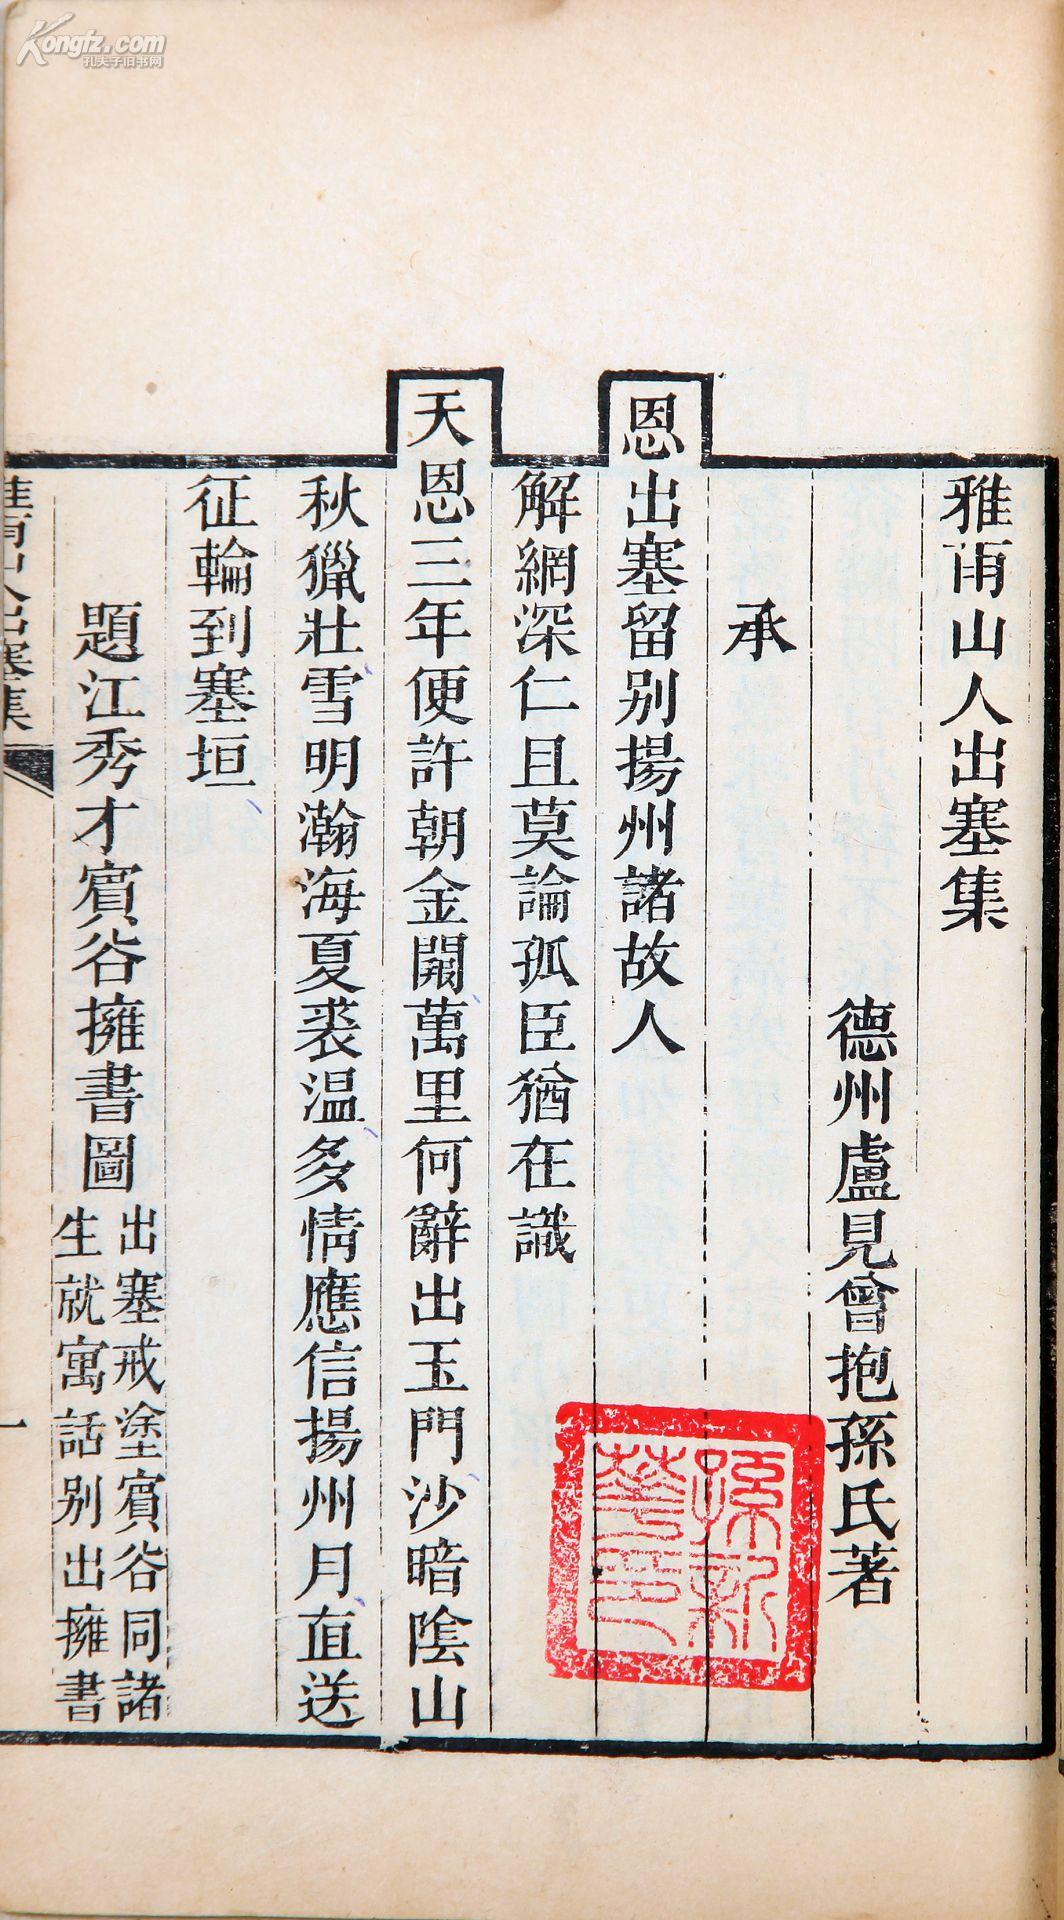 Kongfz.com
孔夫子旧书网
雅雨山人出塞集
德州盧見曾抱孫氏著
承
恩出塞留别揚州諸故人
解網深仁且莫論孤臣猶在識
天恩三年便許朝金闕萬里何辭出玉門沙暗陰山
秋獵壯雪明瀚海夏裘温多情應信揚州月直送
征輪到塞垣
題江秀才賓谷擁書圖
出塞戒塗賓谷同諸
生就寓話别出擁書
雅雨山人出塞集
一
孫新
華印